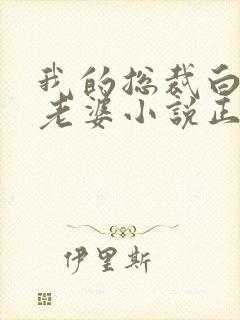 我的总裁白
老婆小説正
伊里斯